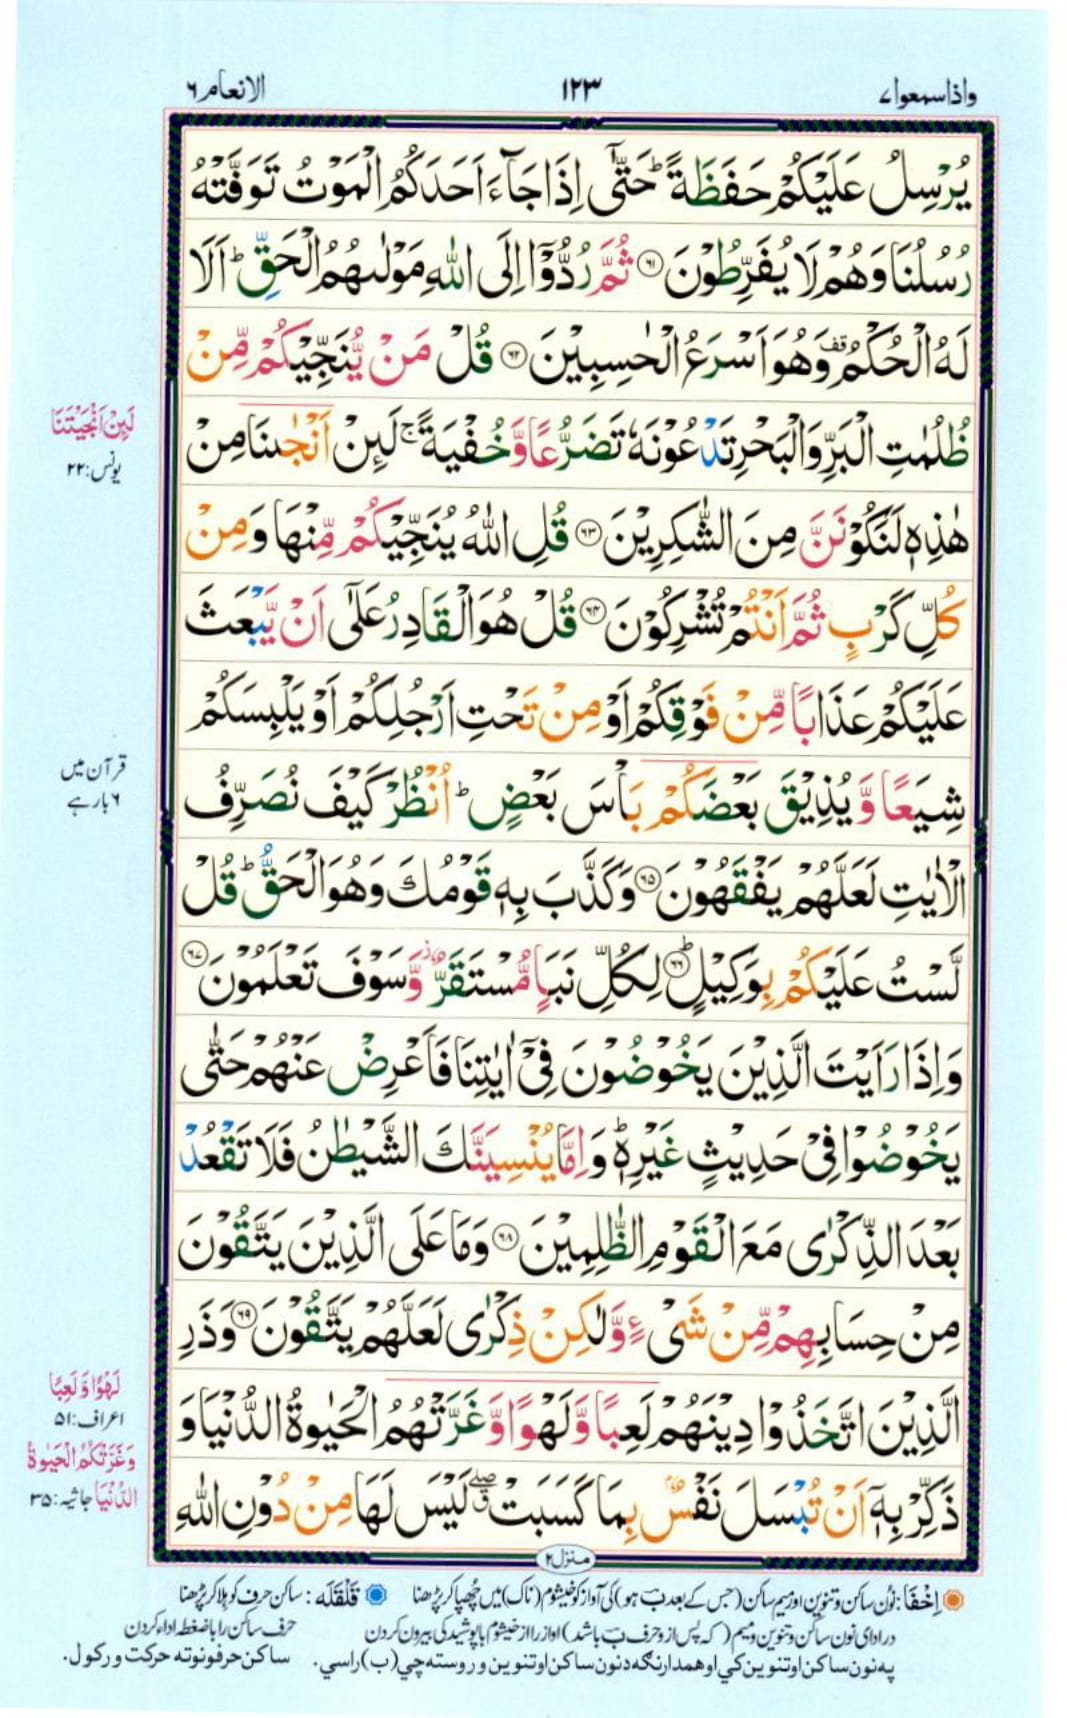 واذاسمعوا ٧
١٢٣
الانعام ٦
يُرْسِلُ عَلَيْكُمْ حَفَظَةً ؕ حَتّٰۤى اِذَا جَآءَ اَحَدَكُمُ الْمَوْتُ تَوَفَّتْهُ
رُسُلُنَا وَهُمْ لَا يُفَرِّطُوْنَ ۝۶۱ ثُمَّ رُدُّوْۤا اِلَى اللّٰهِ مَوْلٰىهُمُ الْحَقِّ ؕ اَلَا
لَهُ الْحُكْمُ قف وَهُوَ اَسْرَعُ الْحٰسِبِيْنَ ۝۶۲ قُلْ مَنْ يُّنَجِّيْكُمْ مِّنْ
ظُلُمٰتِ الْبَرِّ وَالْبَحْرِ تَدْعُوْنَهٗ تَضَرُّعًا وَّخُفْيَةً ۚ لَئِنْ اَنْجٰىنَا مِنْ
هٰذِهٖ لَنَكُوْنَنَّ مِنَ الشّٰكِرِيْنَ ۝۶۳ قُلِ اللّٰهُ يُنَجِّيْكُمْ مِّنْهَا وَمِنْ
كُلِّ كَرْبٍ ثُمَّ اَنْتُمْ تُشْرِكُوْنَ ۝۶۴ قُلْ هُوَ الْقَادِرُ عَلٰۤى اَنْ يَّبْعَثَ
عَلَيْكُمْ عَذَابًا مِّنْ فَوْقِكُمْ اَوْ مِنْ تَحْتِ اَرْجُلِكُمْ اَوْ يَلْبِسَكُمْ
شِيَعًا وَّيُذِيْقَ بَعْضَكُمْ بَاْسَ بَعْضٍ ؕ اُنْظُرْ كَيْفَ نُصَرِّفُ
الْاٰيٰتِ لَعَلَّهُمْ يَفْقَهُوْنَ ۝۶۵ وَكَذَّبَ بِهٖ قَوْمُكَ وَهُوَ الْحَقُّ ؕ قُلْ
لَّسْتُ عَلَيْكُمْ بِوَكِيْلٍ ؕ۝۶۶ لِكُلِّ نَبَاٍ مُّسْتَقَرٌّ ؗ وَّسَوْفَ تَعْلَمُوْنَ ۝۶۷
وَاِذَا رَاَيْتَ الَّذِيْنَ يَخُوْضُوْنَ فِيْۤ اٰيٰتِنَا فَاَعْرِضْ عَنْهُمْ حَتّٰى
يَخُوْضُوْا فِيْ حَدِيْثٍ غَيْرِهٖ ؕ وَاِمَّا يُنْسِيَنَّكَ الشَّيْطٰنُ فَلَا تَقْعُدْ
بَعْدَ الذِّكْرٰى مَعَ الْقَوْمِ الظّٰلِمِيْنَ ۝۶۸ وَمَا عَلَى الَّذِيْنَ يَتَّقُوْنَ
مِنْ حِسَابِهِمْ مِّنْ شَيْءٍ وَّلٰكِنْ ذِكْرٰى لَعَلَّهُمْ يَتَّقُوْنَ ۝۶۹ وَذَرِ
الَّذِيْنَ اتَّخَذُوْا دِيْنَهُمْ لَعِبًا وَّلَهْوًا وَّغَرَّتْهُمُ الْحَيٰوةُ الدُّنْيَا وَ
ذَكِّرْ بِهٖۤ اَنْ تُبْسَلَ نَفْسٌۢ بِمَا كَسَبَتْ ۖۗ لَيْسَ لَهَا مِنْ دُوْنِ اللّٰهِ
لَئِنْ اَنْجَيْتَنَا
یونس:۲۲
قرآن میں
۶ بار ہے
لَهْوًا وَّلَعِبًا
اعراف:۵۱
وَغَرَّتْكُمُ الْحَيٰوةُ
الدُّنْيَا جاثیہ:۳۵
منزل ۲
اِخْفَا: نُون ساکن و تنوین اور میم ساکن (جس کے بعد بَ ہو) کی آواز کو خیشوم (ناک) میں چُھپا کر پڑھنا
قَلْقَلَه: ساکن حرف کو ہلا کر پڑھنا
در ادای نون ساکن و تنوین و میم (که پس از و حرف بَ باشد) آواز را از خیشوم با پوشیدگی بیرون کردن
حرف ساکن را با ضغطه ادا کردن
په نون ساکن او تنوین کي او همدارنګه د نون ساکن او تنوین وروسته چي (ب) راسي.
ساکن حرفونو ته حرکت ورکول.